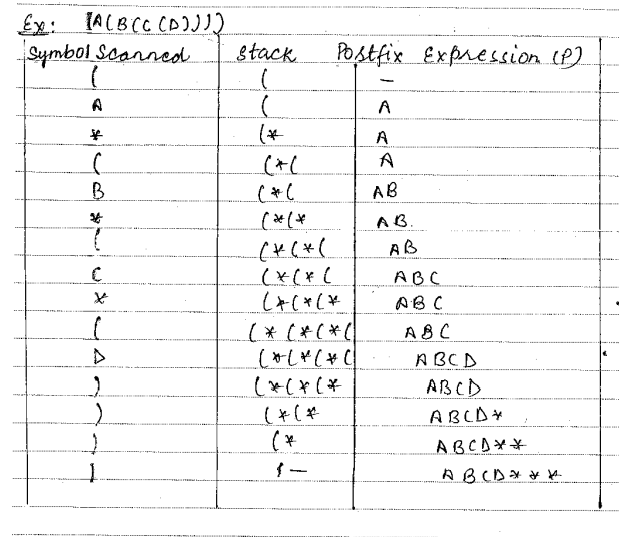 Ex: (A(B(C(D))))
Symbol Scanned Stack Postfix Expression (P)
( ( —
A ( A
* (* A
( (*( A
B (*( AB
* (*(* AB.
( (*(*( AB
C (*(*( ABC
* (*(*(* ABC
( (*(*(*( ABC
D (*(*(*( ABCD
) (*(*(* ABCD
) (*(* ABCD*
) (* ABCD**
) — ABCD***